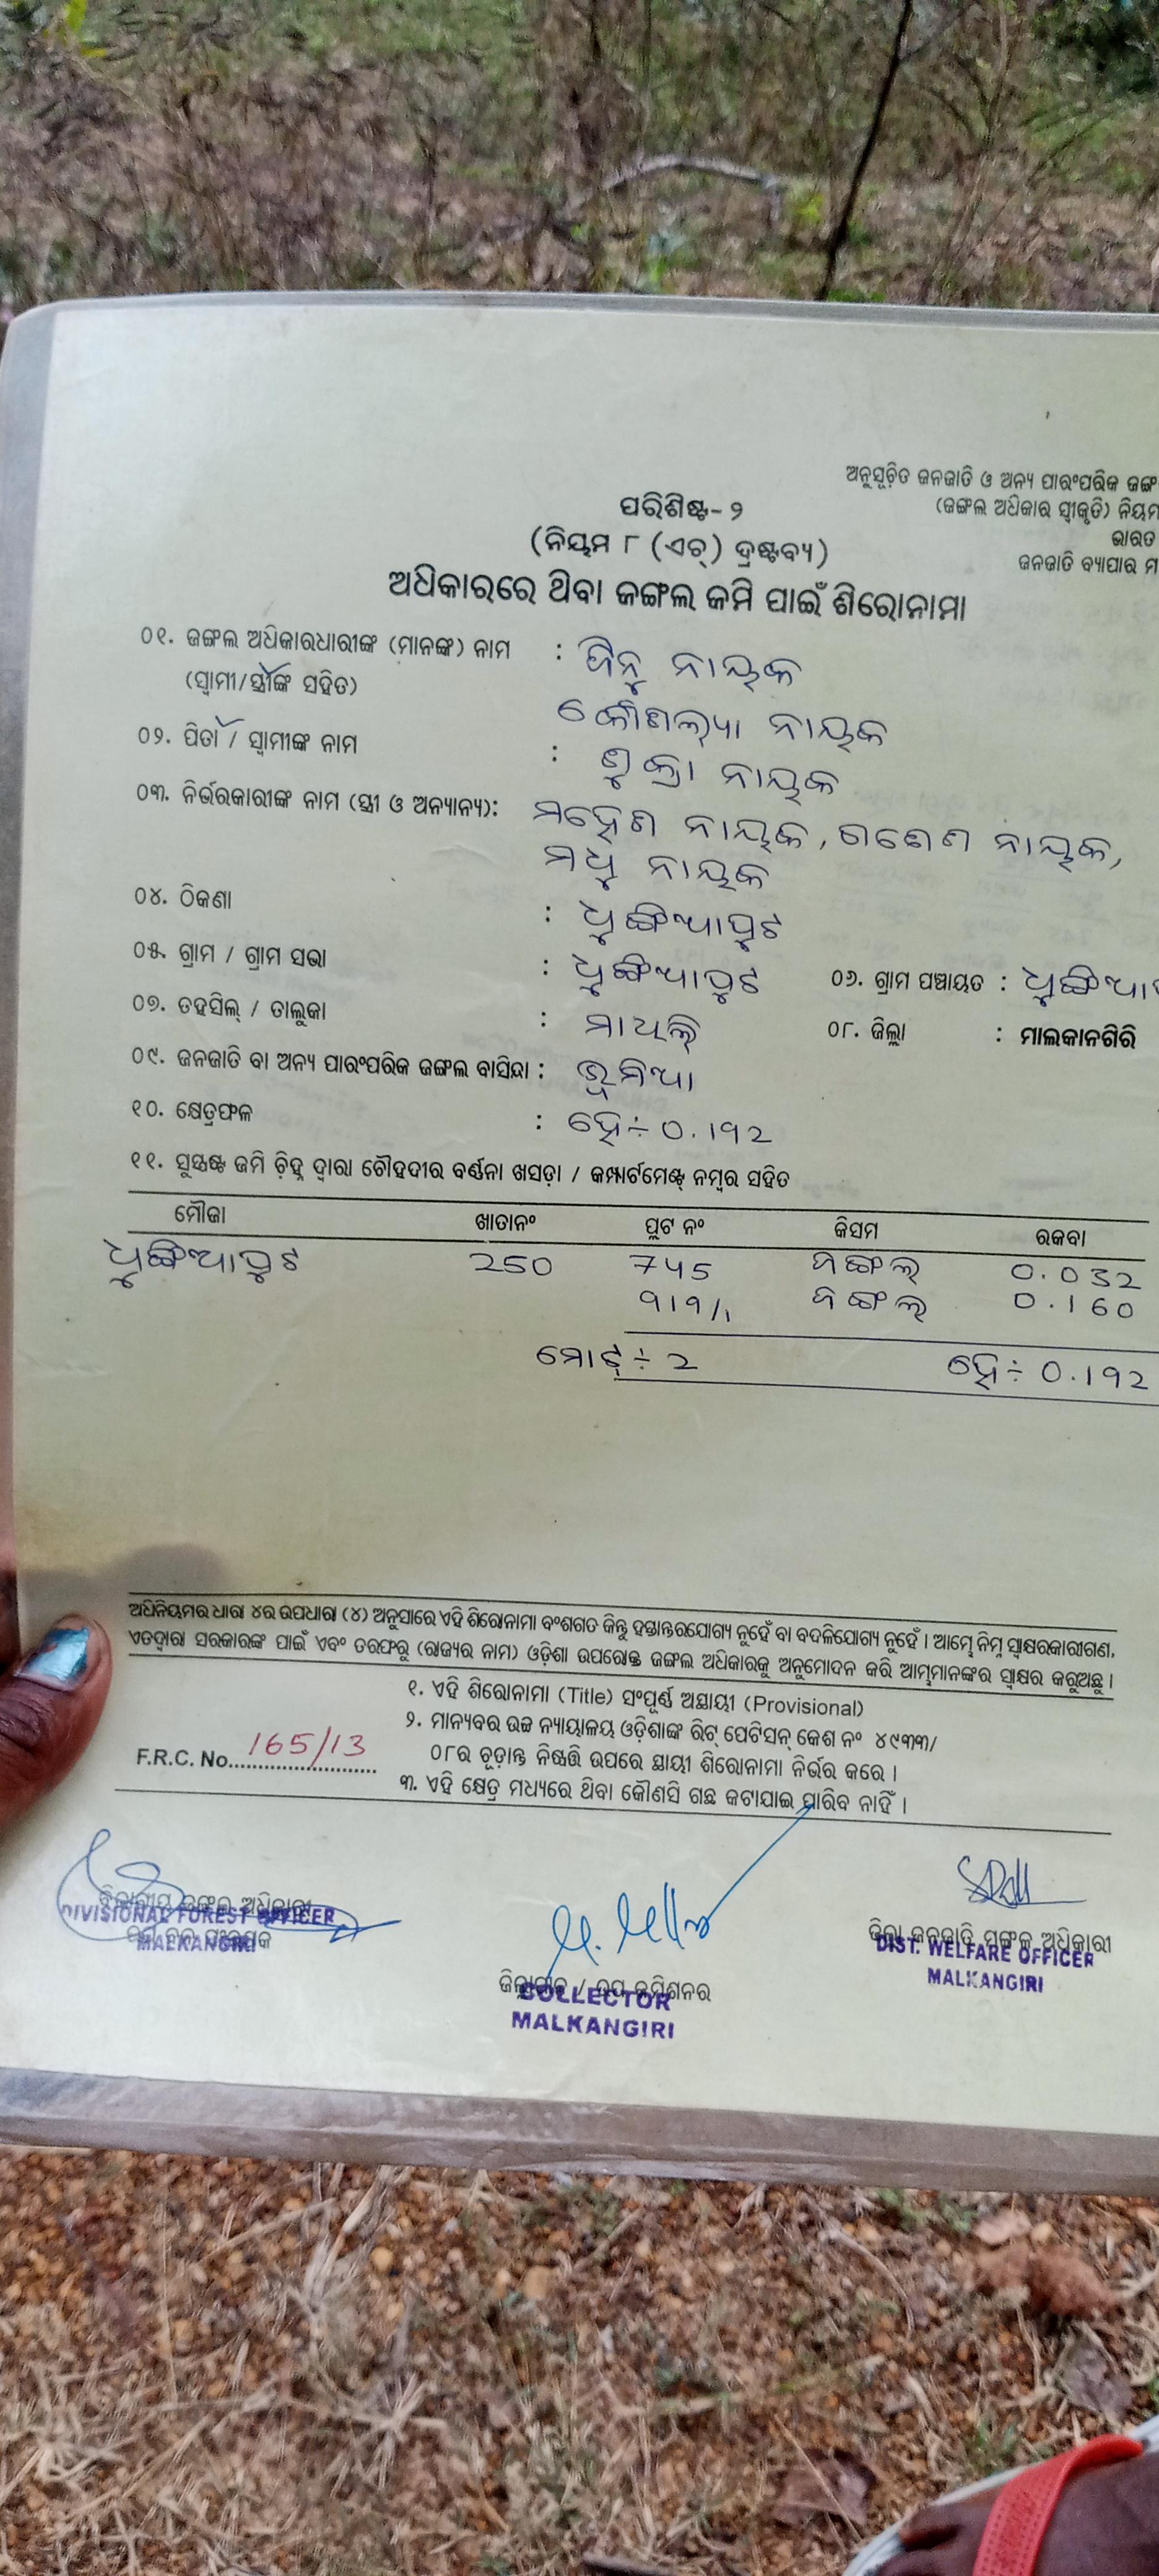 ଅନୁସୂଚିତ ଜନଜାତି ଓ ଅନ୍ୟ ପାରଂପରିକ ଜଙ୍ଗ
(ଜଙ୍ଗଲ ଅଧିକାର ସ୍ୱୀକୃତି) ନିୟମ
ଭାରତ
ଜନଜାତି ବ୍ୟାପାର ମ
ପରିଶିଷ୍ଟ- ୨
(ନିୟମ ୮ (ଏଚ୍) ଦ୍ରଷ୍ଟବ୍ୟ)
ଅଧିକାରରେ ଥିବା ଜଙ୍ଗଲ ଜମି ପାଇଁ ଶିରୋନାମା
୦୧. ଜଙ୍ଗଲ ଅଧିକାରଧାରୀଙ୍କ (ମାନଙ୍କ) ନାମ : ଜିନୁ ନାୟକ
(ସ୍ୱାମୀ/ସ୍ତ୍ରୀଙ୍କ ସହିତ) କୌଶଲ୍ୟା ନାୟକ
୦୨. ପିତା / ସ୍ୱାମୀଙ୍କ ନାମ : ଶୁକ୍ରା ନାୟକ
୦୩. ନିର୍ଭରକାରୀଙ୍କ ନାମ (ସ୍ତ୍ରୀ ଓ ଅନ୍ୟାନ୍ୟ): ମହେଶ ନାୟକ, ଗଣେଶ ନାୟକ,
ମଧୁ ନାୟକ
୦୪. ଠିକଣା : ଧୁଙ୍ଗିଆପୁଟ
୦୫. ଗ୍ରାମ / ଗ୍ରାମ ସଭା : ଧୁଙ୍ଗିଆପୁଟ ୦୬. ଗ୍ରାମ ପଞ୍ଚାୟତ : ଧୁଙ୍ଗିଆ
୦୭. ତହସିଲ୍ / ତାଲୁକା : ମାଥିଲି ୦୮. ଜିଲ୍ଲା : ମାଲକାନଗିରି
୦୯. ଜନଜାତି ବା ଅନ୍ୟ ପାରଂପରିକ ଜଙ୍ଗଲ ବାସିନ୍ଦା : ଭୂମିଆ
୧୦. କ୍ଷେତ୍ରଫଳ : ହେ÷ 0.192
୧୧. ସୁସ୍ପଷ୍ଟ ଜମି ଚିହ୍ନ ଦ୍ୱାରା ଚୌହଦୀର ବର୍ଣ୍ଣନା ଖସଡ଼ା / କମ୍ପାର୍ଟମେଣ୍ଟ୍ ନମ୍ବର ସହିତ
ମୌଜା ଖାତାନଂ ପ୍ଲଟ ନଂ କିସମ ରକବା
ଧୁଙ୍ଗିଆପୁଟ 250 745 ଜଙ୍ଗଲ 0.032
919/1 ଜଙ୍ଗଲ 0.160
ମୋଟ୍ ÷ 2 ହେ÷ 0.192
ଅଧିନିୟମର ଧାରା ୪ର ଉପଧାରା (୪) ଅନୁସାରେ ଏହି ଶିରୋନାମା ବଂଶଗତ କିନ୍ତୁ ହସ୍ତାନ୍ତରଯୋଗ୍ୟ ନୁହେଁ ବା ବଦଳିଯୋଗ୍ୟ ନୁହେଁ । ଆମ୍ଭେ ନିମ୍ନ ସ୍ୱାକ୍ଷରକାରୀଗଣ,
ଏତଦ୍ୱାରା ସରକାରଙ୍କ ପାଇଁ ଏବଂ ତରଫରୁ (ରାଜ୍ୟର ନାମ) ଓଡ଼ିଶା ଉପରୋକ୍ତ ଜଙ୍ଗଲ ଅଧିକାରକୁ ଅନୁମୋଦନ କରି ଆମ୍ଭମାନଙ୍କର ସ୍ୱାକ୍ଷର କରୁଅଛୁ ।
୧. ଏହି ଶିରୋନାମା (Title) ସଂପୂର୍ଣ୍ଣ ଅସ୍ଥାୟୀ (Provisional)
୨. ମାନ୍ୟବର ଉଚ୍ଚ ନ୍ୟାୟାଳୟ ଓଡ଼ିଶାଙ୍କ ରିଟ୍ ପେଟିସନ୍ କେଶ ନଂ ୪୯୩୩/
୦୮ର ଚୂଡ଼ାନ୍ତ ନିଷ୍ପତ୍ତି ଉପରେ ସ୍ଥାୟୀ ଶିରୋନାମା ନିର୍ଭର କରେ ।
F.R.C. No. 165/13
୩. ଏହି କ୍ଷେତ୍ର ମଧ୍ୟରେ ଥିବା କୌଣସି ଗଛ କଟାଯାଇ ପାରିବ ନାହିଁ ।
ବିଭାଗୀୟ ଜଙ୍ଗଲ ଅଧିକାରୀ
DIVISIONAL FOREST OFFICER
MALKANGIRI
ଜିଲ୍ଲା ଜନଜାତି ମଙ୍ଗଳ ଅଧିକାରୀ
DIST. WELFARE OFFICER
MALKANGIRI
ଜିଲ୍ଲାପାଳ / ଉପ କମିଶନର
COLLECTOR
MALKANGIRI